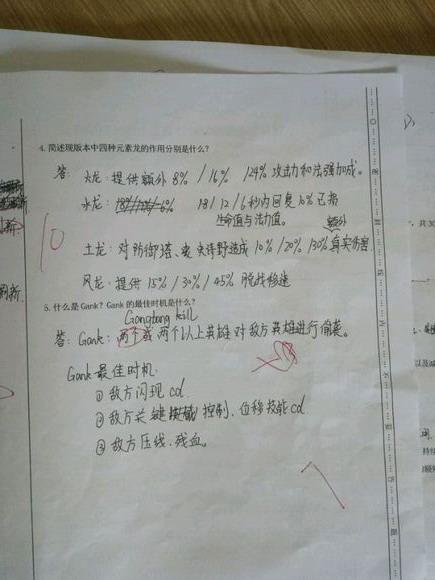 4. 简述现版本中四种元素龙的作用分别是什么?
答: 火龙: 提供额外 8% / 16% / 24% 攻击力和法强加成。
水龙: 18 / 12 / 6 秒内回复 10% 已损
生命值与法力值。
额外
土龙: 对防御塔、史诗野怪造成 10% / 20% / 30% 真实伤害
风龙: 提供 15% / 30% / 45% 脱战移速
10
5. 什么是 Gank? Gank 的最佳时机是什么?
Gangbang kill
答: Gank: 两个或两个以上英雄对敌方英雄进行偷袭。
Gank 最佳时机
① 敌方闪现 cd
② 敌方关键控制、位移技能 cd
③ 敌方压线、残血。
7